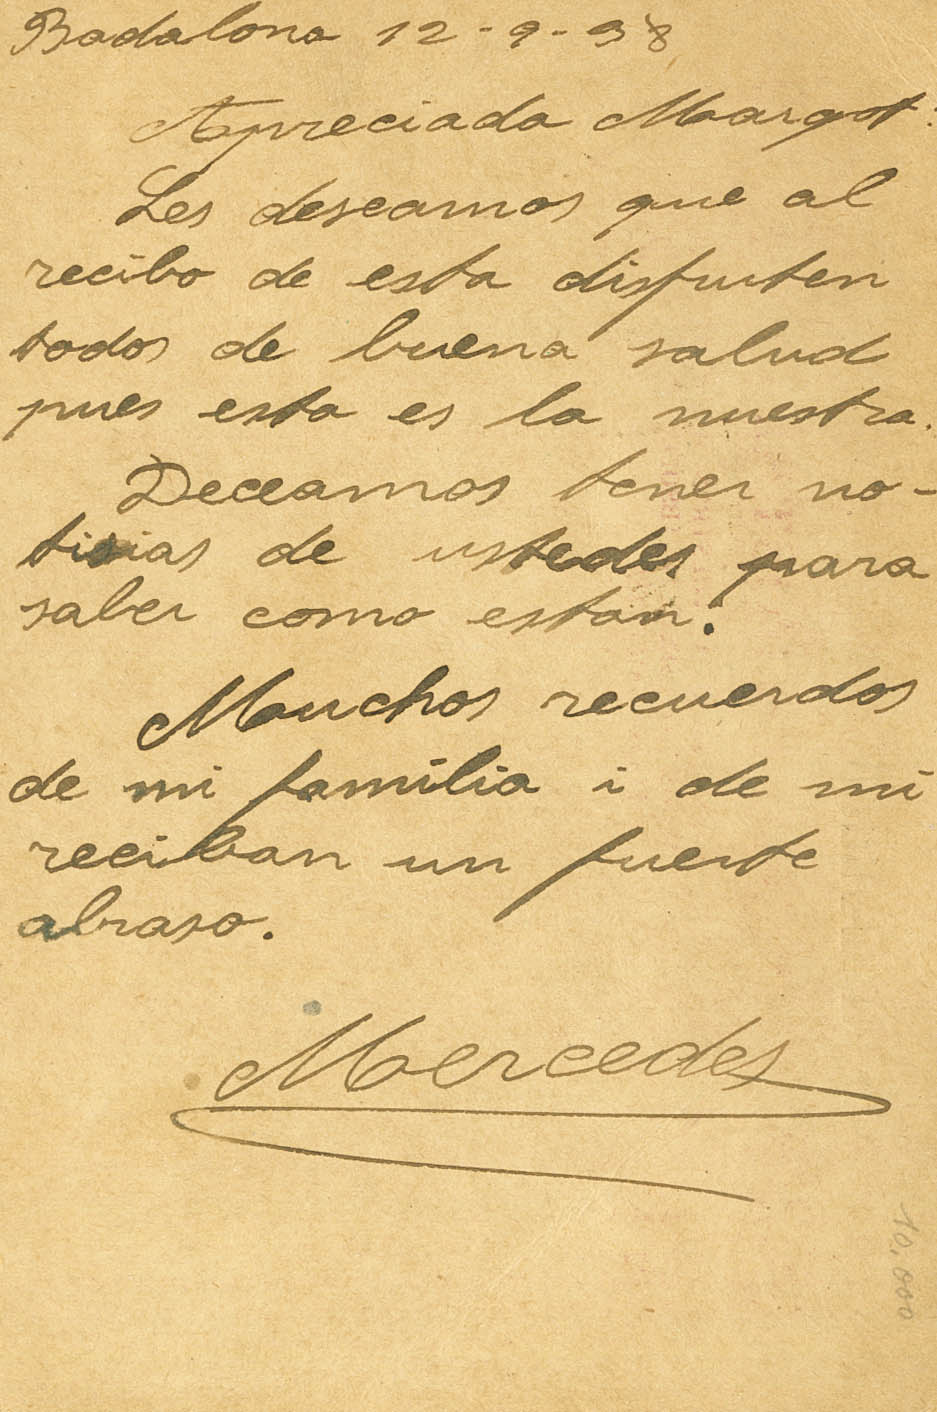 Badalona 12-9-38
Apreciada Margot:
Les deseamos que al
recibo de esta disfruten
todos de buena salud
pues esta es la nuestra.
Deceamos tener no-
tisias de ustedes para
saber como estan.
Muchos recuerdos
de mi família i de mí
reciban un fuerte
abraso.
Mercedes
10,000